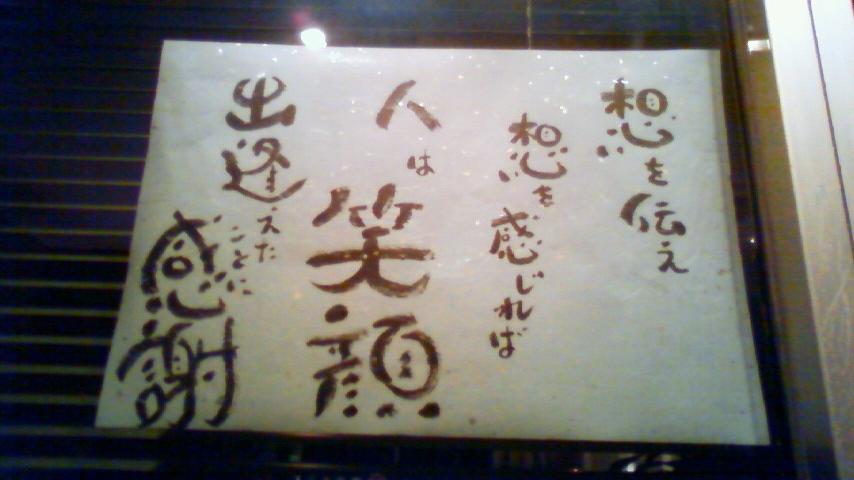 想を伝え
想を感じれば
人は笑顔
出逢えたことに
感謝